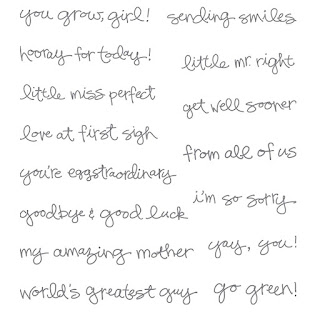 you grow, girl!
sending smiles
hooray for today!
little mr. right
little miss perfect
get well sooner
love at first sigh
from all of us
you're eggstraordinary
i'm so sorry
goodbye & good luck
yay, you!
my amazing mother
world's greatest guy
go green!